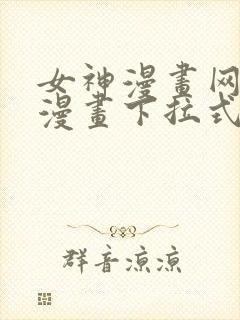 女神漫畫网
漫畫下拉式
群音涼涼